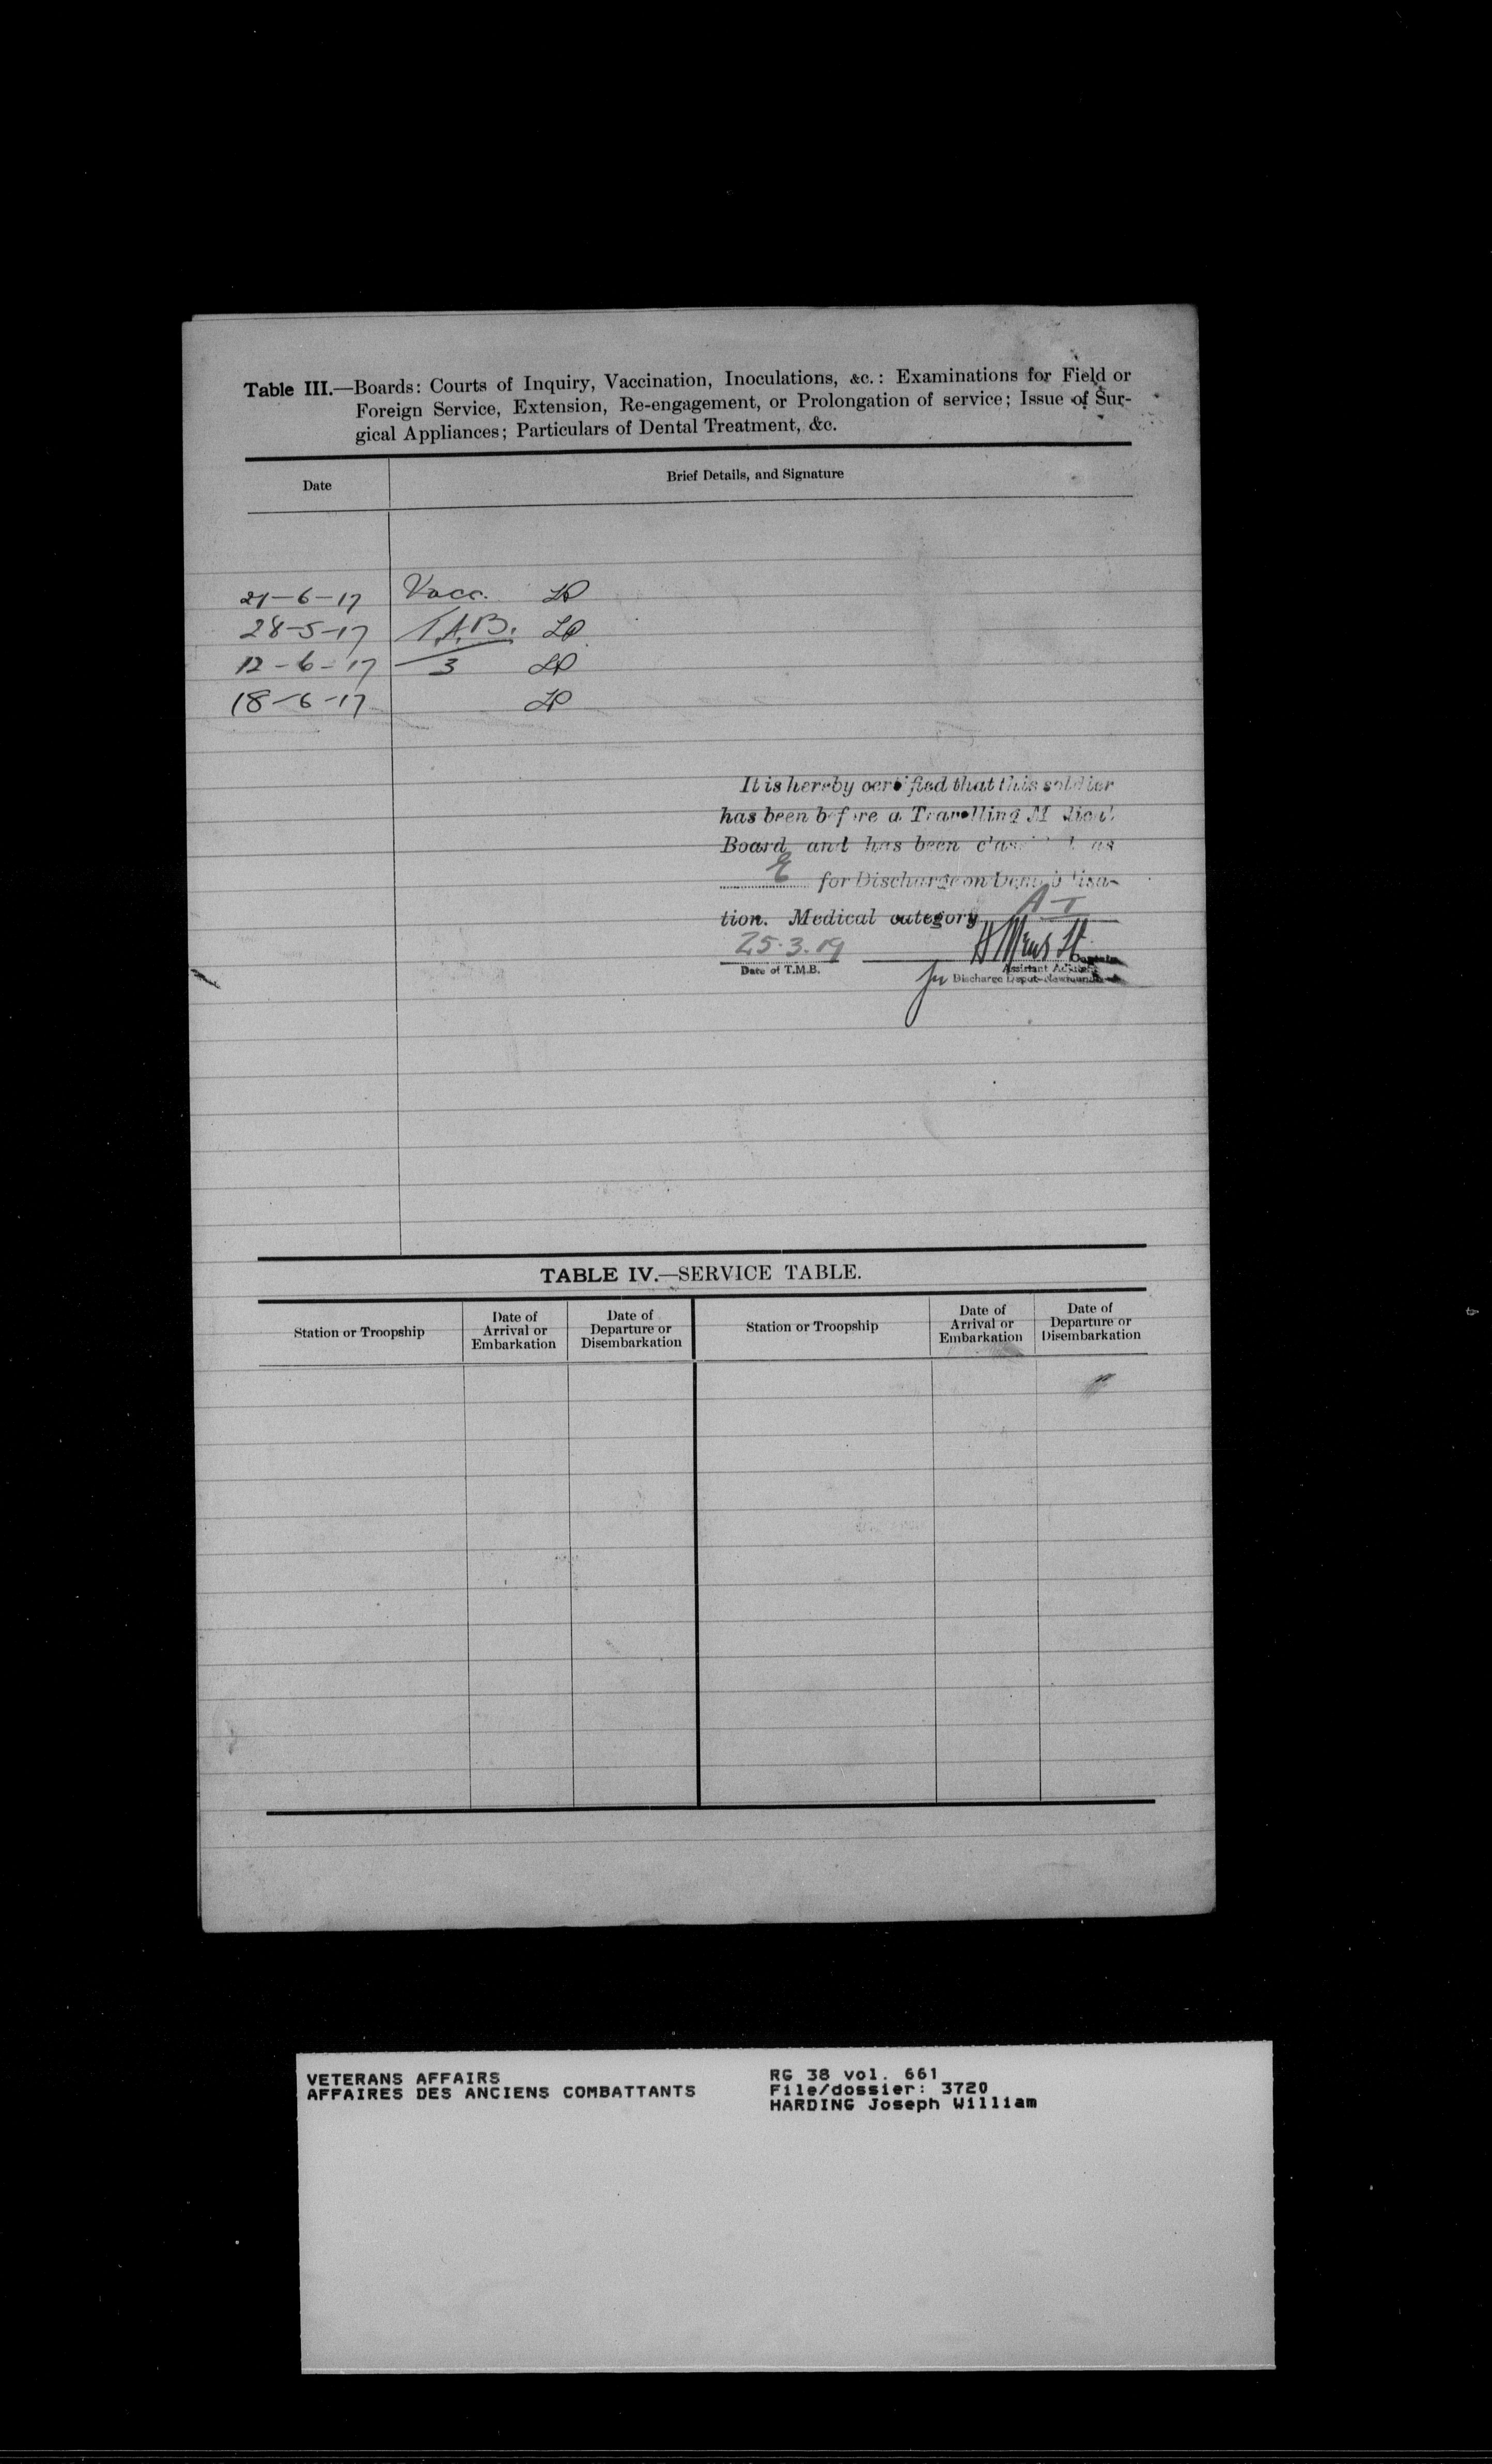 Table III.—Boards: Courts of Inquiry, Vaccination, Inoculations, &c.: Examinations for Field or
Foreign Service, Extension, Re-engagement, or Prolongation of service; Issue of Sur-
gical Appliances; Particulars of Dental Treatment, &c.
Date Brief Details, and Signature
21-6-17 Vacc.
28-5-17 T.A.B.
12-6-17 3
18-6-17
It is hereby certified that this soldier
has been before a Travelling Medical
Board and has been classified as
E for Discharge on Demobilisa-
tion. Medical category A I
25.3.19
Date of T.M.B. Assistant Adjutant
for Discharge Depot-Newfoundland
TABLE IV.—SERVICE TABLE.
Station or Troopship Date of Arrival or Embarkation Date of Departure or Disembarkation Station or Troopship Date of Arrival or Embarkation Date of Departure or Disembarkation
VETERANS AFFAIRS RG 38 vol. 661
AFFAIRES DES ANCIENS COMBATTANTS File/dossier: 3720
HARDING Joseph William